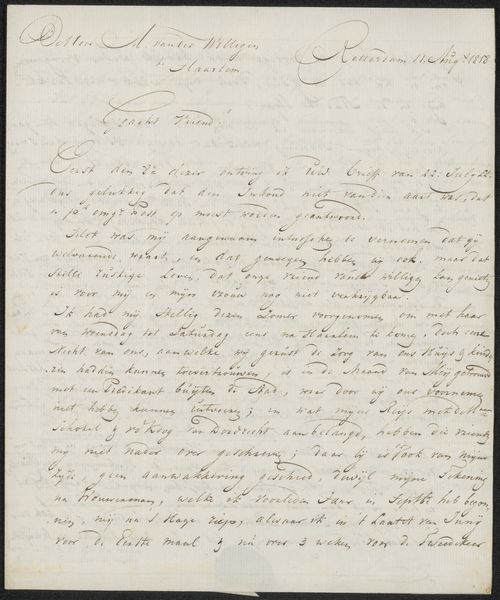 A. van der Willigen
te Haarlem
Rotterdam 11 Augt 1818
Geachte Vriend!
Eerst den 8e dezer ontving ik Uw brief van 22 July
ons gelukkig dat den Inhoud niet van dien aart was, dat
p omgde Post op moest worden geantwoord.
was mij aangenaam te vernemen dat gij
welvarende waart, en dat genoegen hebben wij ook. maar dat
stille rustige Leven, dat onze vriend van der Willigen Lang geniet
is voor mij en mijn vrouw nog niet verkrijgbaar.
Ik had mij stellig dezen Zomer voorgenomen om met haar
van woensdag tot Saturdag eens na Haarlem te komen, doch eene
Nicht van ons, aan welke wij gerust de zorg van ons Huys & kinde
ren hadden kunnen toevertrouwen, is in de Maand van Mey getrouwd
met een Predikant buijten de Stad, waar door wij ons voornemen
niet hebbe kunnen uitvoeren; en wat mijne Reys met de Heeren
Schotel & de Koog van Dordrecht aanbelangd, hebben die vrienden
mij niet nader over geschreven; daar bij is ook van mijne
zijde geen aanwakkering geschied, dewijl mijne Tekening
na Brouwerman, welke ik voorleden Jaar in Septbr heb begon
nen, mij na 's Hage riep, alwaar ik in 't Laatst van Junij
voor de Eerste maal & nu over 3 weken voor de Tweedekeer